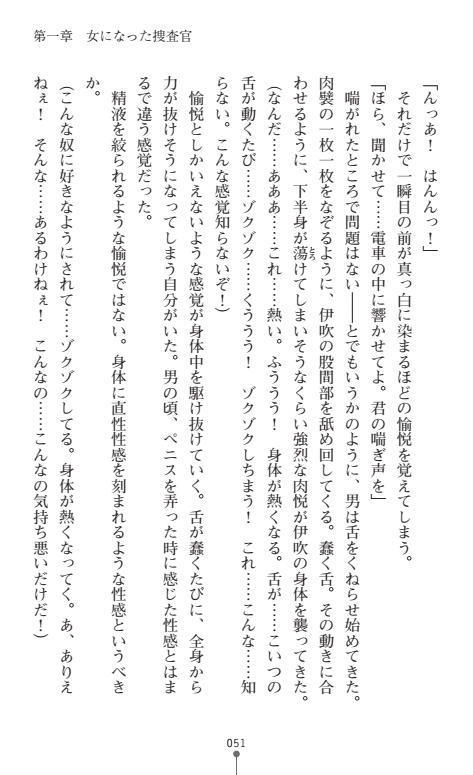 第一章　女になった捜査官
「んっあ！　はんんっ！」
　それだけで一瞬目の前が真っ白に染まるほどの愉悦を覚えてしまう。
「ほら、聞かせて……電車の中に響かせてよ。君の喘ぎ声を」
　喘がれたところで問題はない――とでもいうかのように、男は舌をくねらせ始めてきた。
肉襞の一枚一枚をなぞるように、伊吹の股間部を舐め回してくる。蠢く舌。その動きに合
わせるように、下半身が蕩けてしまいそうなくらい強烈な肉悦が伊吹の身体を襲ってきた。
（なんだ……あああ……これ……熱い。ふううう！　身体が熱くなる。舌が……こいつの
舌が動くたび……ゾクゾク……くううう！　ゾクゾクしちまう！　これ……こんな……知
らない。こんな感覚知らないぞ！）
　愉悦としかいえないような感覚が身体中を駆け抜けていく。舌が蠢くたびに、全身から
力が抜けそうになってしまう自分がいた。男の頃、ペニスを弄った時に感じた性感とはま
るで違う感覚だった。
　精液を絞られるような愉悦ではない。身体に直性性感を刻まれるような性感というべき
か。
（こんな奴に好きなようにされて……ゾクゾクしてる。身体が熱くなってく。あ、ありえ
ねぇ！　そんな……あるわけねぇ！　こんなの……こんなの気持ち悪いだけだ！）
051